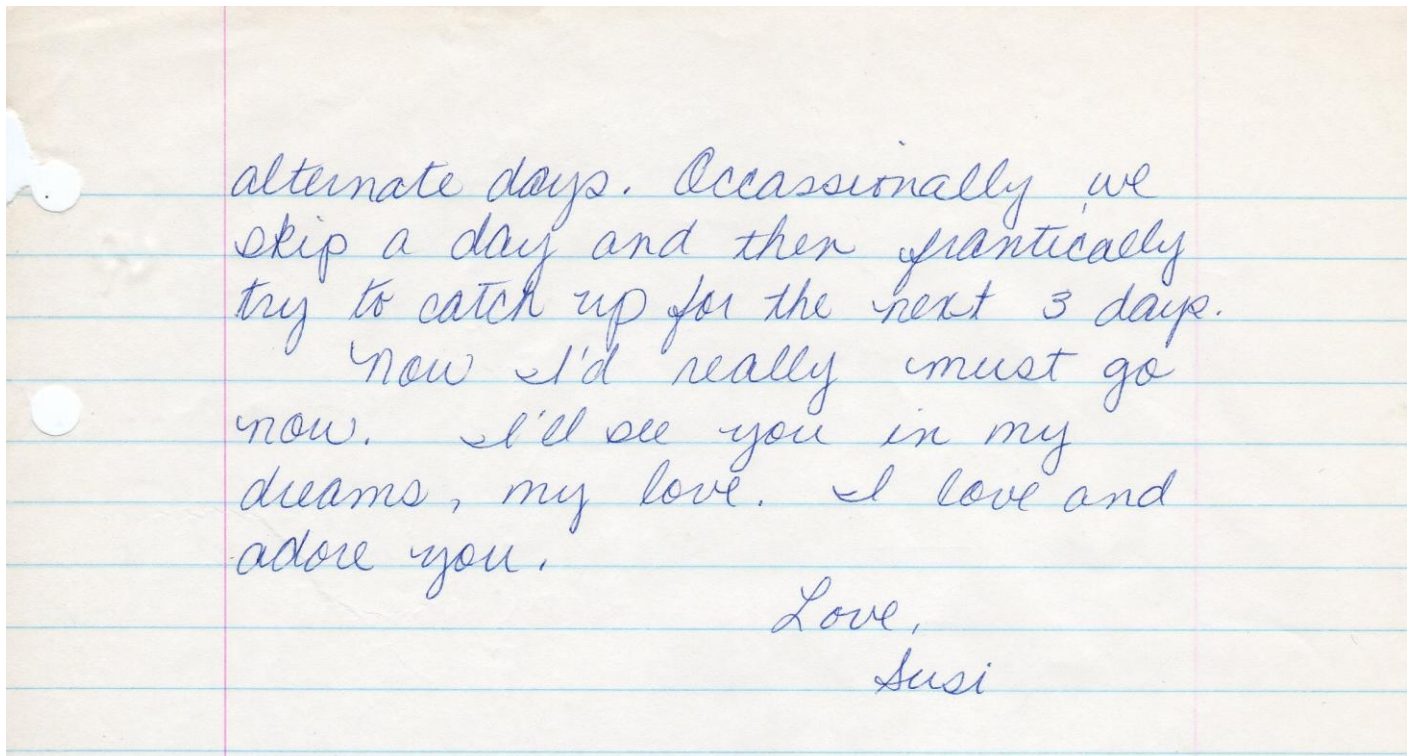 alternate days. Occassionally we
skip a day and then frantically
try to catch up for the next 3 days.
Now I'd really must go
now. I'll see you in my
dreams, my love. I love and
adore you.
Love,
Susi